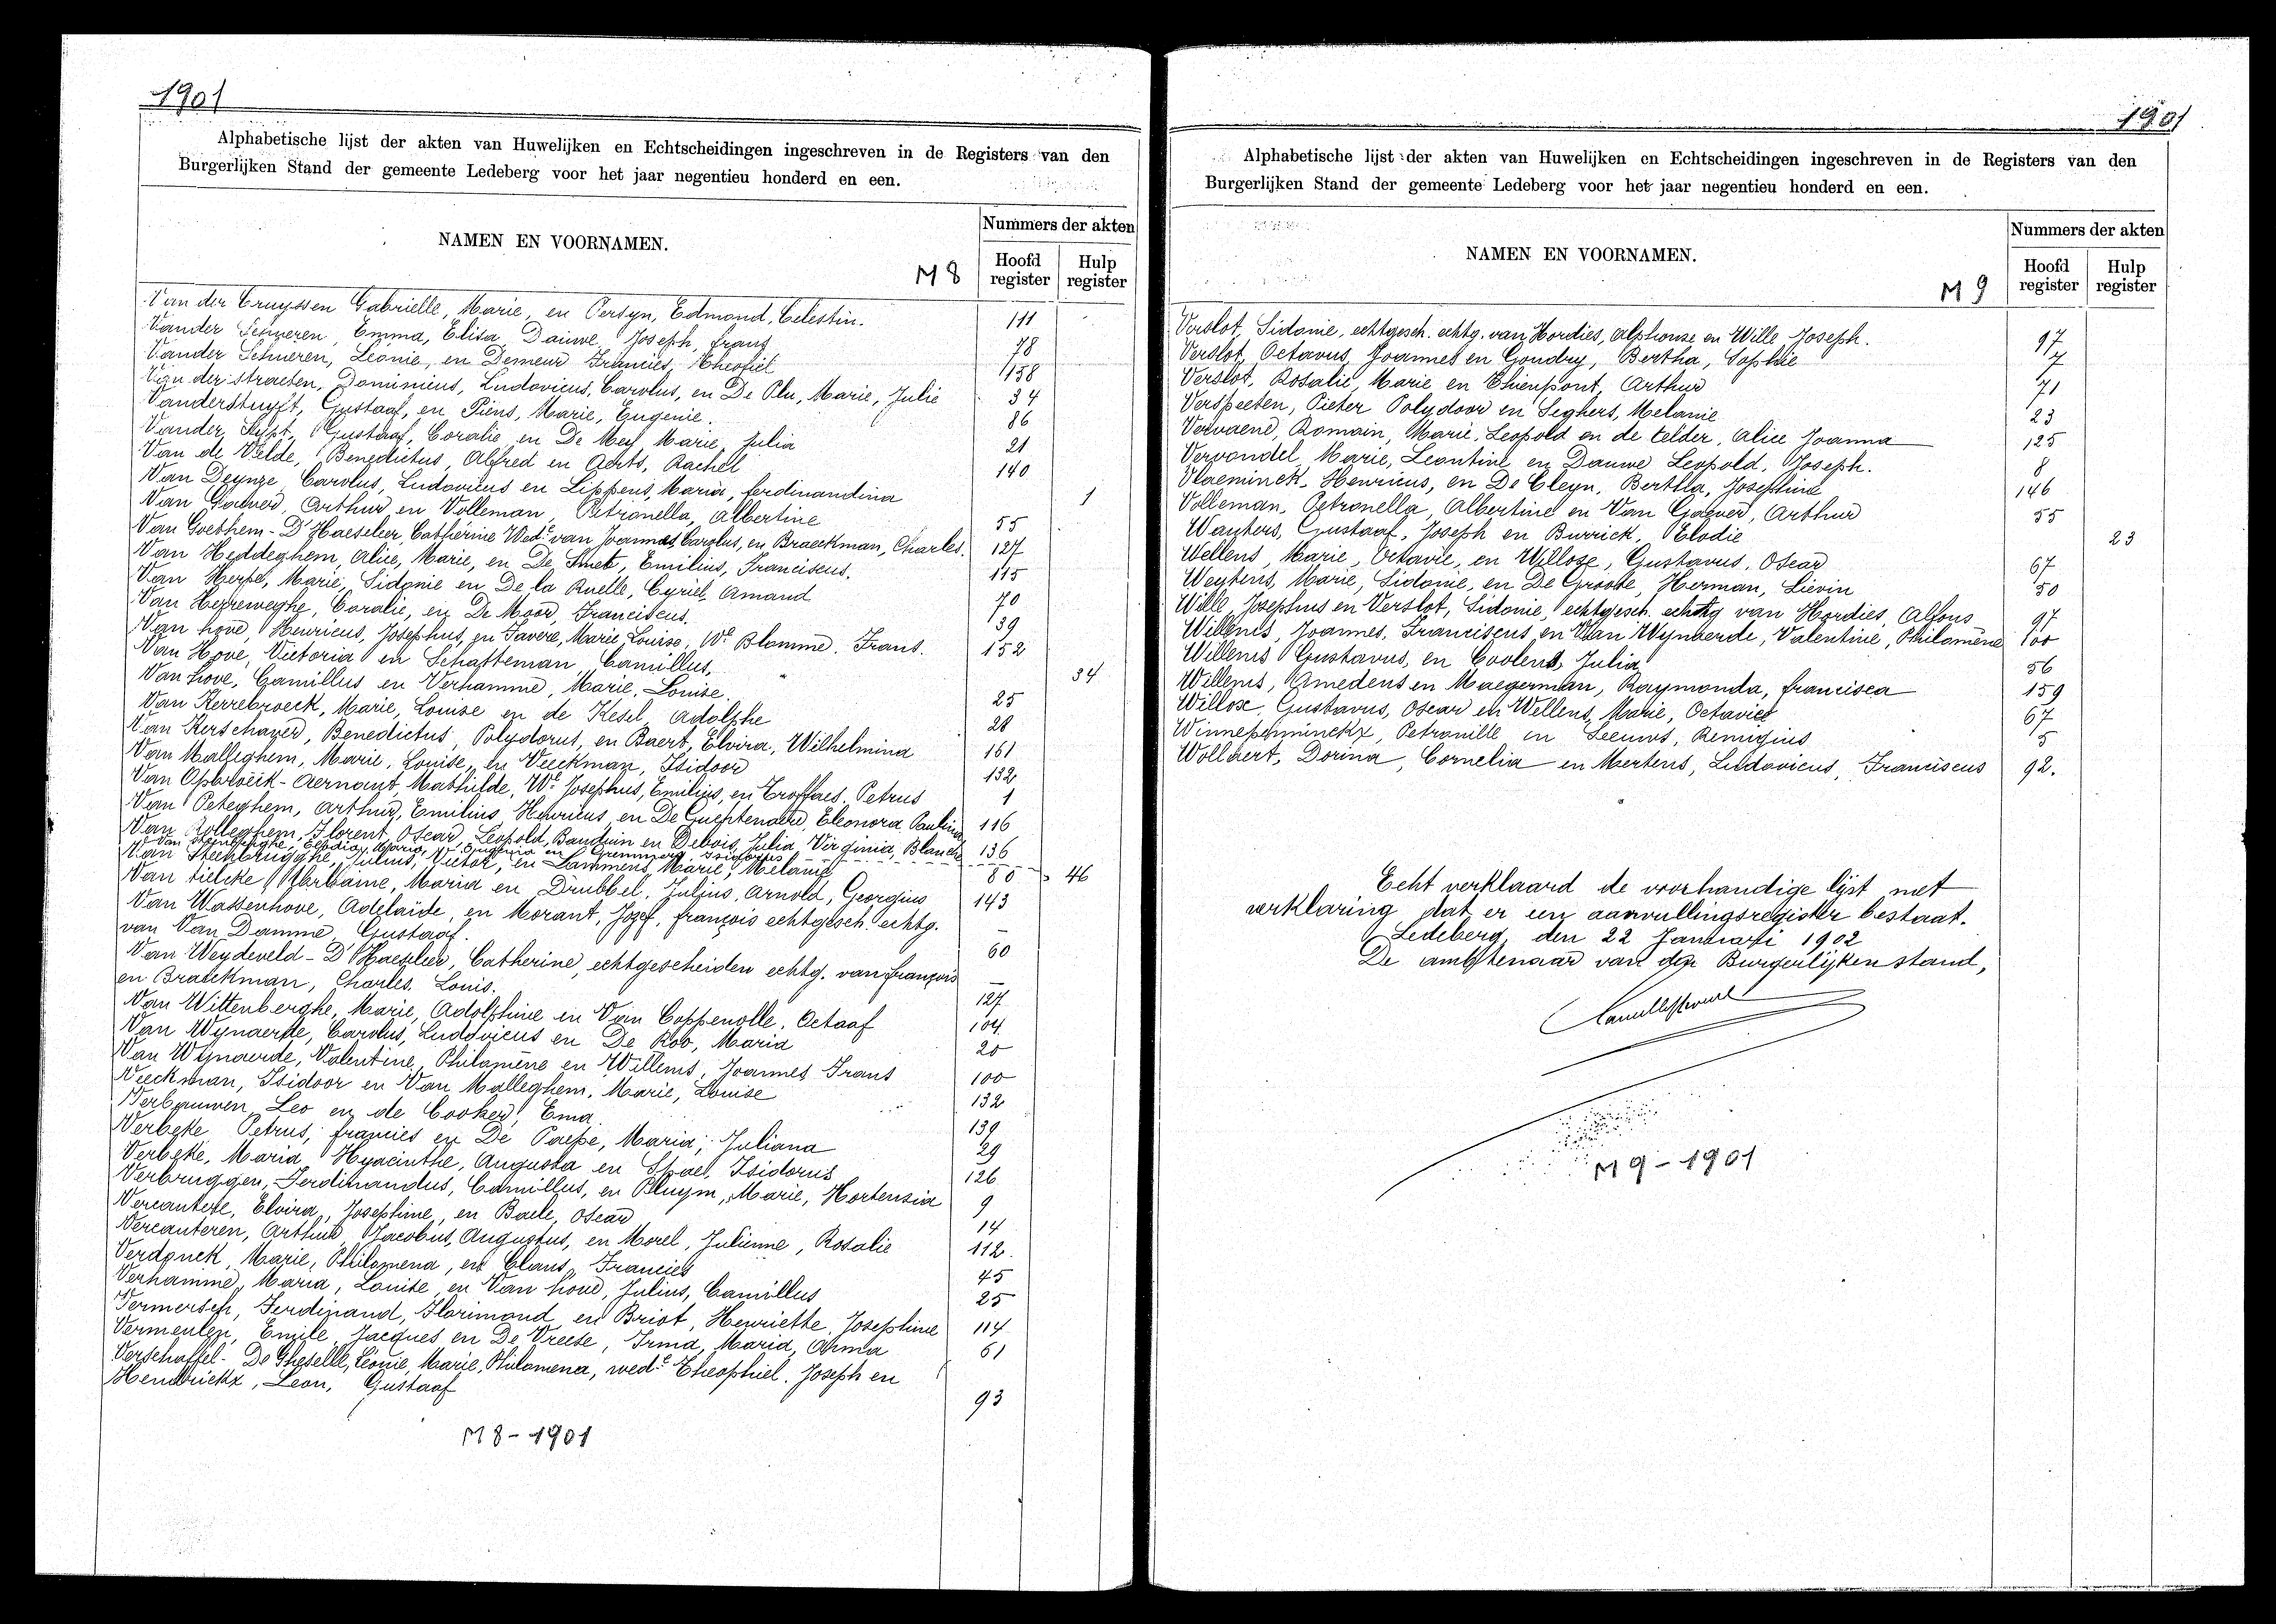 1901
Alphabetische lijst der akten van Huwelijken en Echtscheidingen ingeschreven in de Registers van den
Burgerlijken Stand der gemeente Ledeberg voor het jaar negentieu honderd en een.
NAMEN EN VOORNAMEN.
Nummers der akten
M 8
Hoofd register
Hulp register
Van der Cruyssen Gabrielle, Marie, en Persyn, Edmond, Celestin. 111
Vander Schueren, Emma, Elisa, Dauwe, Joseph, frans 78
Vander Schueren, Leonie, en Demeur Francies, Theofiel 158
Van der straeten, Dominicus, Ludovicus, Carolus, en De Plu, Marie, Julie 34
Vanderstuyft, Gustaaf, en Piens, Marie, Eugenie. 86
Vander Sypt, Gustaaf, Coralie en De Mey Marie, Julia 21
Van de Velde, Benedictus, Alfred en Aerts, Rachel 140
Van Deynze, Carolus, Ludovicus en Lippens, Maria, ferdinandina 1
Van Gaever, Arthur en Volleman, Petronella, Albertine 55
Van Goethem - D'Haeseleer, Catherine Wed.e van Joannes, Carolus, en Braeckman, Charles. 127
Van Heddeghem, Alice, Marie, en De Smet, Emilius, Franciscus. 115
Van Herpe, Marie, Sidonie en De la Ruelle, Cyriel, Amand 70
Van Herreweghe, Coralie, en De Moor, Franciscus. 139
Van hove, Henricus, Josephus, en Favere, Marie, Louise, We Blomme, Frans. 152
Van Hove, Victoria en Schatteman, Camillus, 34
Van hove, Camillus en Verhamme, Marie, Louise. 25
Van Kerrebroeck, Marie, Louise en de Kesel, Adolphe 28
Van Kerschaver, Benedictus, Polydorus, en Baert, Elvira, Wilhelmina 161
Van Malleghem, Marie, Louise, en Vieckman, Isidoor 132
Van Opbroeck - Aernout, Mathilde, We Josephus, Emilius, en Troffaes, Petrus 1
Van Peteghem, Arthur, Emilius, Henricus, en De Guchtenaere, Eleonora, Paulina 116
Van Rolleghem, Florent, Oscar, Leopold, Bauduin en Debois, Julia, Virginia, Blanche 136
Van Steenbrugghe, Julius, Victor, en Lammens, Marie, Melanie 80 46
Van tielcke, Germaine, Maria en Drubbel, Julius, Arnold, Georgius 143
Van Wassenhove, Adelaïde, en Morant, Jozef, françois echtgesch. echtg.
van Van Damme, Gustaaf. 60
Van Weydeveld - D'Haeseleer, Catherine, echtgescheiden echtg. van françois
en Braeckman, Charles, Louis. 127
Van Wittenberghe, Marie, Adolphine en Van Coppenolle, Octaaf 104
Van Wynaerde, Carolus, Ludovicus en De Roo, Maria 20
Van Wynaerde, Valentine, Philomène en Willems, Joannes, Frans 100
Vieckman, Isidoor en Van Malleghem, Marie, Louise 132
Verbauwen, Leo en de Cooker, Ema. 139
Verbeke, Petrus, francies en De Paepe, Maria, Juliana 29
Verbeke, Maria, Hyacinthe, Augusta en Spae, Isidorus 126
Verbruggen, Ferdinandus, Camillus, en Pluym, Marie, Hortensia 9
Vercautere, Elvira, Josephine, en Baele, Oscar 14
Vercauteren, Arthur, Jacobus, Augustus, en Morel, Julienne, Rosalie 112.
Verdonck, Marie, Philomena, en Claus, Francies 45
Verhamme, Maria, Louise en Van hove, Julius, Camillus 25
Vermersch, Ferdinand, Florimond en Briot, Henriette, Josephine 114
Vermeulen, Emile, Jacques en De Vreese, Irma, Maria, Anna 61
Verschaffel - De Gheselle, Leonie, Marie, Philomena, wed.e Theophiel, Joseph en
Hendrickx, Leon, Gustaaf 93
M 8 - 1901
1901
Alphabetische lijst der akten van Huwelijken en Echtscheidingen ingeschreven in de Registers van den
Burgerlijken Stand der gemeente Ledeberg voor het jaar negentieu honderd en een.
NAMEN EN VOORNAMEN.
Nummers der akten
M 9
Hoofd register
Hulp register
Verslot, Sidonie, echtgesch. echtg. van Hordies, Alphonse en Wille, Joseph. 97
Verslot, Octavus, Joannes en Goudry, Bertha, Sophie 7
Verslot, Rosalie, Marie en Thienpont, Arthur 71
Verspeeten, Pieter Polydoor en Seghers, Melanie 23
Vervaene, Romain, Marie, Leopold en de telder, Alice Joanna 125
Vervondel, Marie, Leontine en Dauwe Leopold, Joseph. 8
Vlaeminck, Henricus, en De Cleyn, Bertha, Josephine 146
Volleman, Petronella, Albertine en Van Gaever, Arthur 55
Wauters, Gustaaf, Joseph en Burrick, Elodie 23
Wellens, Marie, Octavie, en Willoxe, Gustavus, Oscar 67
Weytens, Marie, Sidonie, en De Groote, Herman, Lievin 50
Wille, Josephus en Verslot, Sidonie, echtgesch. echtg van Hordies, Alfons 97
Willems, Joannes, Franciscus en Van Wynaerde, Valentine, Philomène 100
Willems Gustavus, en Coolens, Julia 56
Willems, Amedeus en Maegerman, Raymonda, francisca 159
Willox, Gustavus, Oscar en Wellens, Marie, Octavie 67
Winnepenninckx, Petronille en Leeuws, Remigius 5
Wollaert, Dorina, Cornelia en Mertens, Ludovicus, Franciscus 92.
Echt verklaard de voorhandige lijst met
verklaring dat er een aanvullingsregister bestaat.
Ledeberg, den 22 Januari 1902
De ambtenaar van den Burgerlijken stand,
M 9 - 1901